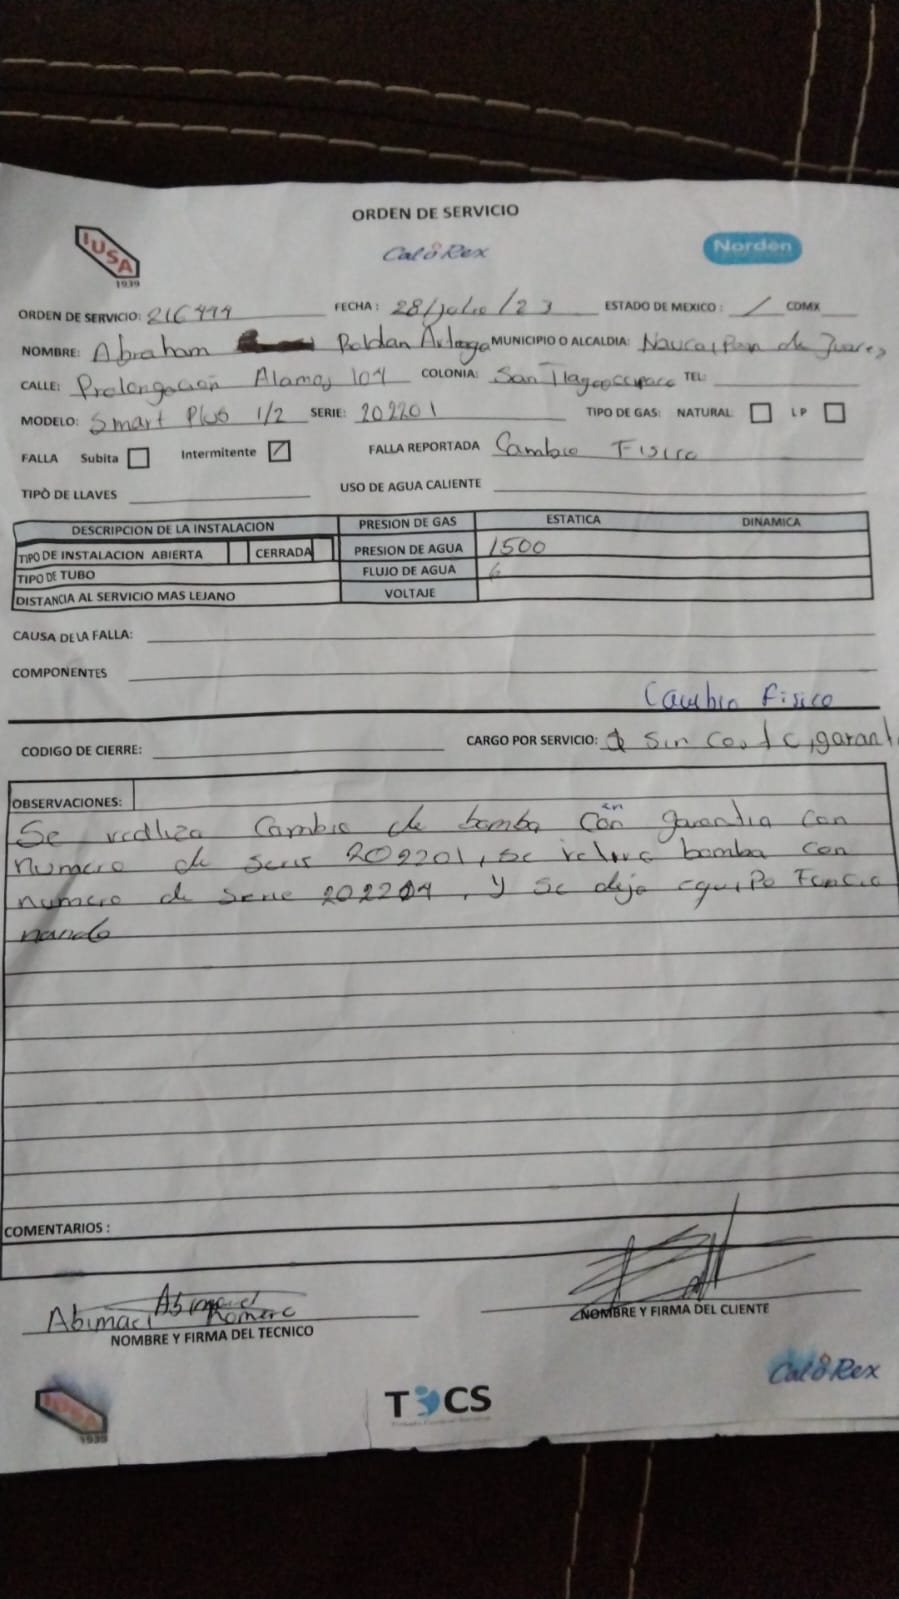 ORDEN DE SERVICIO
IUSA
1939
CaloRex
Norden
ORDEN DE SERVICIO: 216444 FECHA: 28/Julio/23 ESTADO DE MEXICO: / CDMX
NOMBRE: Abraham Roldan MUNICIPIO O ALCALDIA: Naucalpan de Juarez
CALLE: Prolongación Alamos 104 COLONIA: San TEL:
MODELO: Smart Plus 1/2 SERIE: 202201 TIPO DE GAS: NATURAL LP
FALLA Subita Intermitente / FALLA REPORTADA Cambio Fisico
TIPÒ DE LLAVES USO DE AGUA CALIENTE
DESCRIPCION DE LA INSTALACION PRESION DE GAS ESTATICA DINAMICA
TIPO DE INSTALACION ABIERTA CERRADA PRESION DE AGUA 1500
TIPO DE TUBO FLUJO DE AGUA 6
DISTANCIA AL SERVICIO MAS LEJANO VOLTAJE
CAUSA DE LA FALLA:
COMPONENTES
Cambio Fisico
CODIGO DE CIERRE: CARGO POR SERVICIO: Sin costo, garanti
OBSERVACIONES:
Se realiza Cambio de bomba en garantia con
numero de serie 202201, se retira bomba con
numero de serie 202204, y se deja equipo Funcio
nando
COMENTARIOS :
Abimael Abimael
Romero
NOMBRE Y FIRMA DEL TECNICO
NOMBRE Y FIRMA DEL CLIENTE
IUSA
1939
TCS
CaloRex